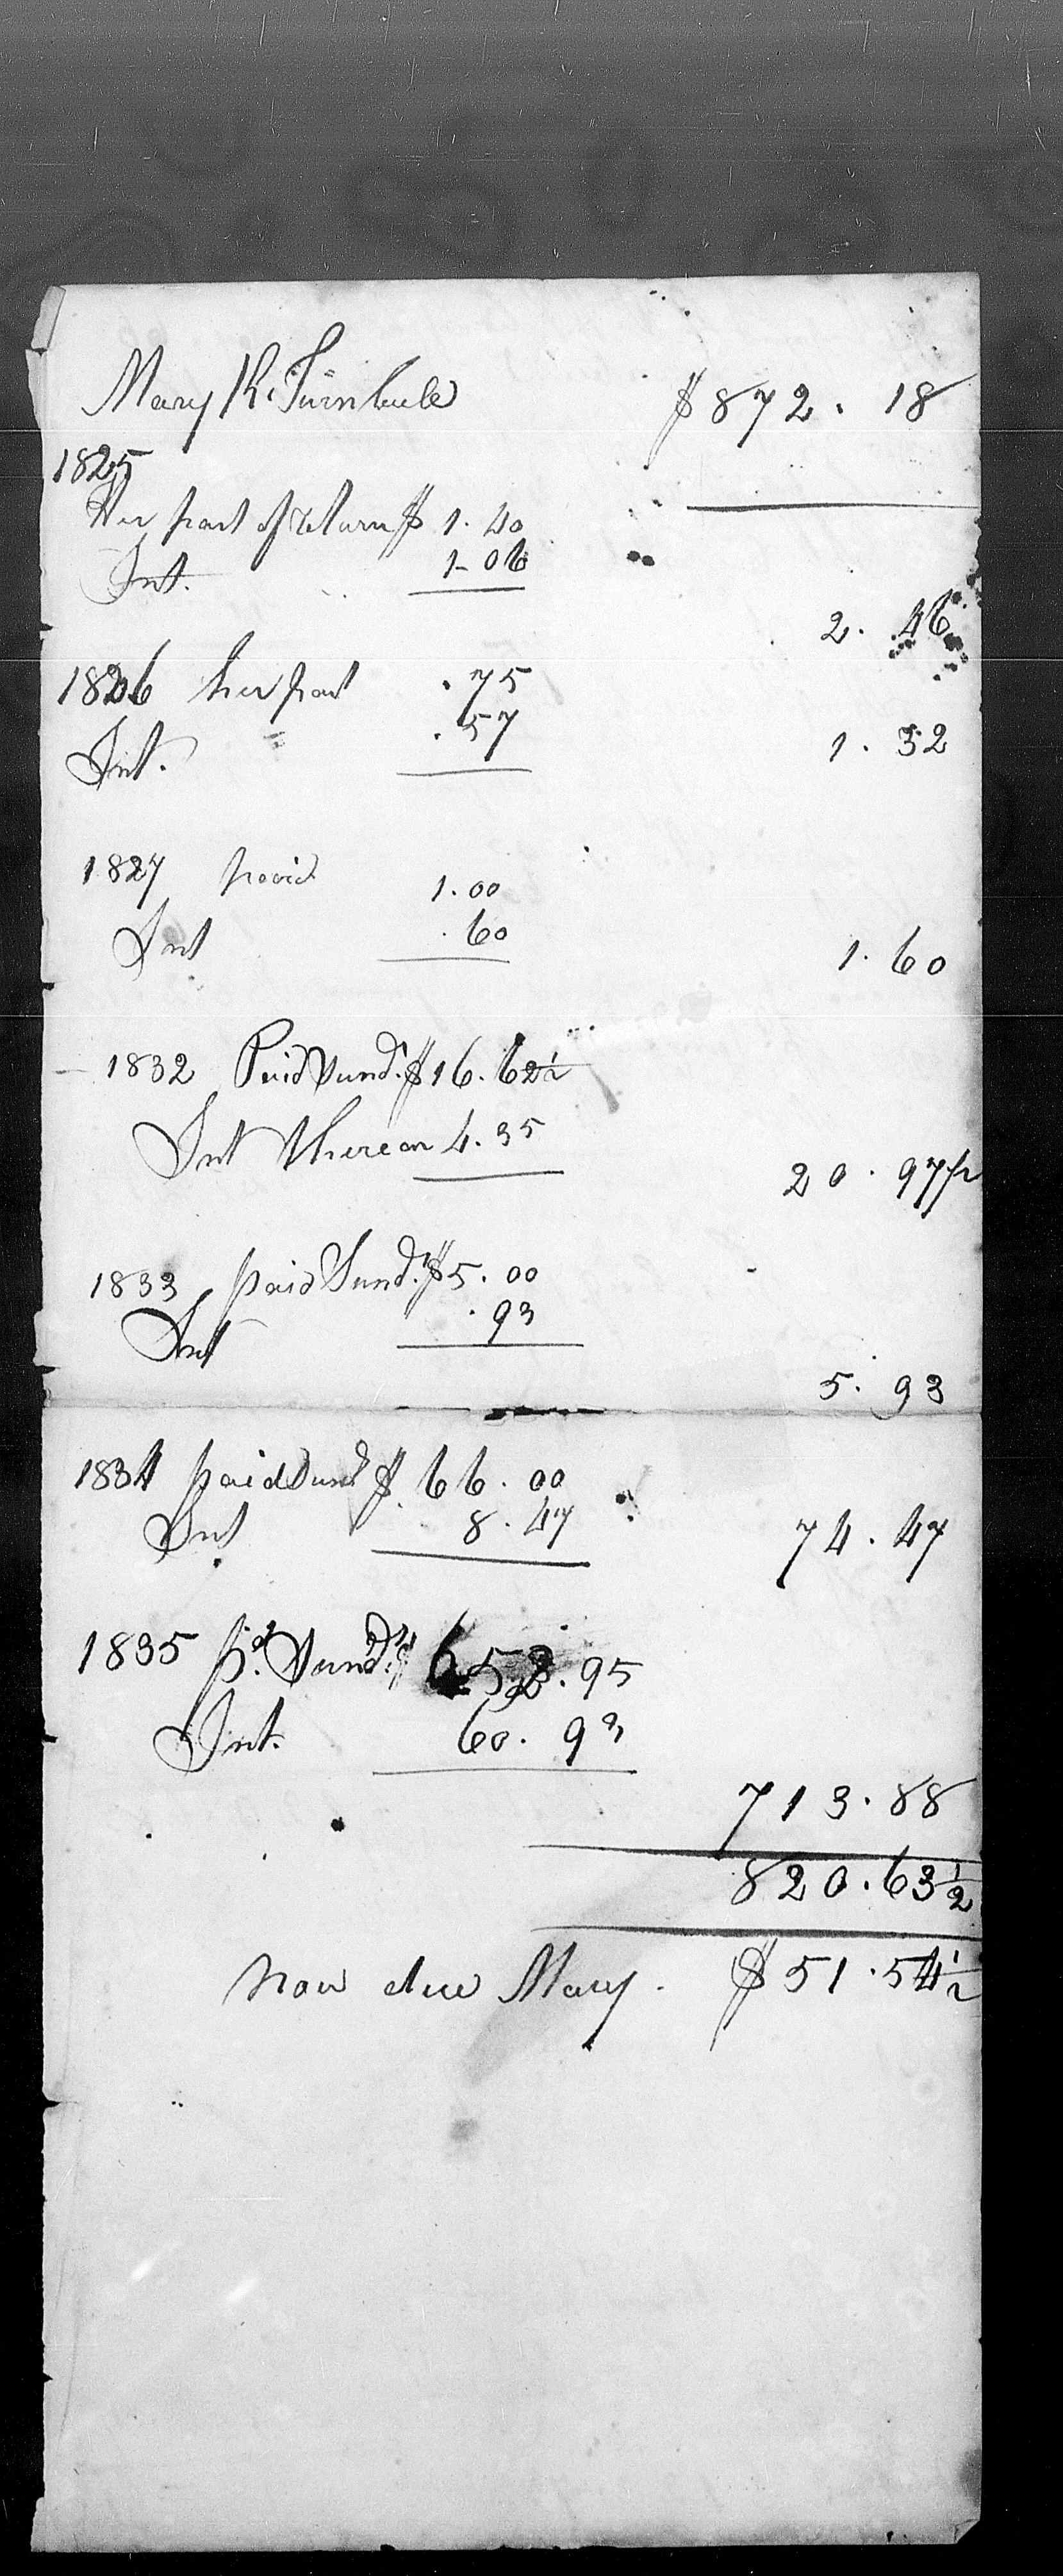 Mary R. Turnbull $872. 18
1825
Her part of return $ 1. 40
Int. 1- 06
2. 46
1826 her part . 75
Int. . 57
1. 32
1827 paid 1. 00
Int . 60
1. 60
1832 Paid Sund.s $16. 62½
Int thereon 4. 35
20. 97½
1833 paid Sund.s $5. 00
Int . 93
5. 93
1834 paid Sund $ 66. 00
Int 8. 47
74. 47
1835 pd. Sund.s $ 652. 95
Int. 60. 93
713. 88
820. 63½
now due Mary. $51. 54½